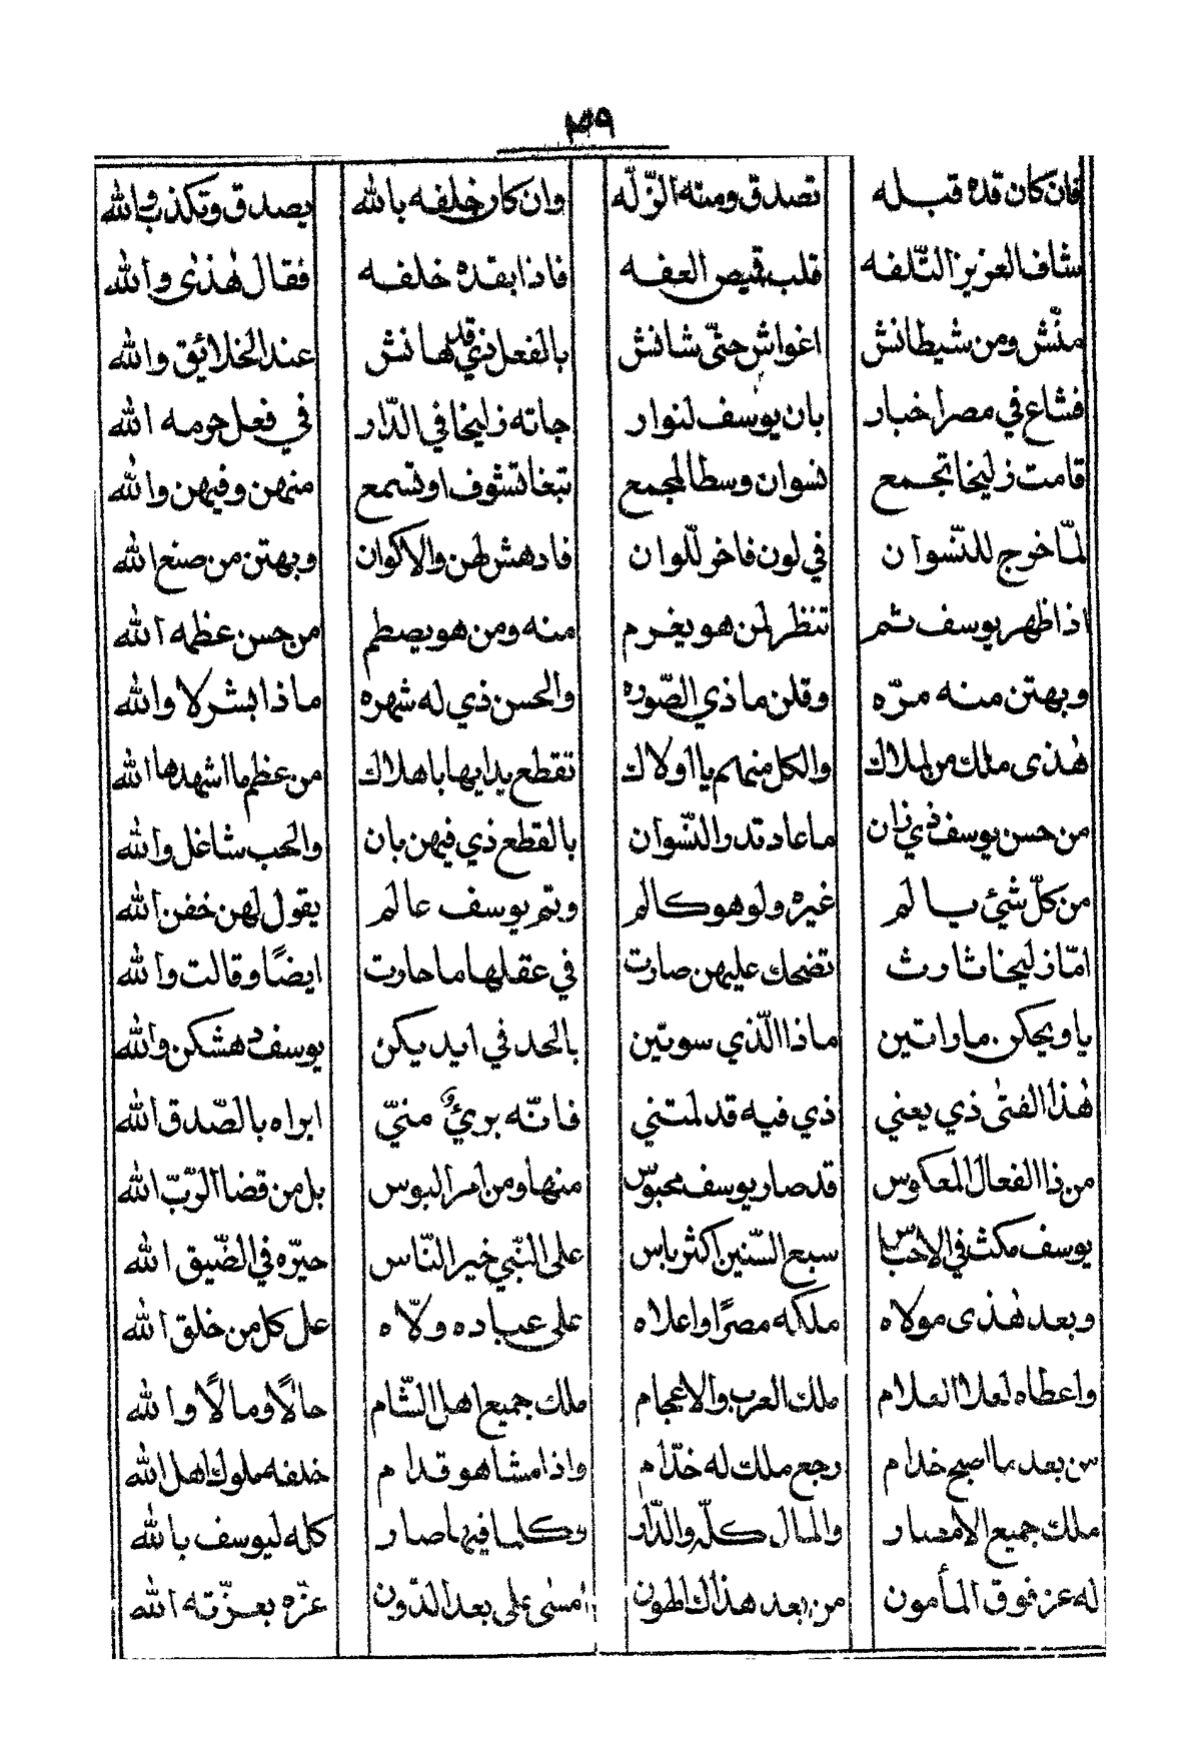 ٣٩
فان كان قده قبله تصدق ومنه الزّله وان كان خلفه بالله يصدق وتكذب والله
شاف العزيز التّلفه قلب قميص العفه فاذا بقده خلفه فقال هٰذى والله
منّش ومن شيطانش اغواش حتّى شانش بالفعل ذي قدها نش عند الخلائق والله
فشاع في مصر اخبار بان يوسف لنوار جاته زليخا في الدّار في فعل حومه الله
قامت زليخا تجمع نسوان وسط المجمع تبغا تشوف او تسمع منهن وفيهن والله
لمّا خرج للنّسوان في لون فاخر للّوان فادهش لهن والاكوان وبهتن من صنع الله
اذا ظهر يوسف ثم تنظر لمن هو يغرم منه ومن هو يصطم من حسن عظمه الله
وبهتن منه مرّه وقلن ما ذي الصّوره والحسن ذي له شهره ماذا بشر لا والله
هٰذى ملك من لملاك والكل منهم يا اولاك تقطع يدايها باهلاك من عظم ما اشهدها الله
من حسن يوسف ذي زان ما عاد تدر النّسوان بالقطع ذي فيهن بان والحب شاغل والله
من كلّ شئ يالم غيره ولو هو كالم ويتم يوسف عالم يقول لهن خفن الله
امّا زليخا ثارث تضحك عليهن صارت في عقلها ما حارت ايضًا وقالت والله
يا ويحكن ما راتين ماذا الّذي سوتين بالحد في ايديكن يوسف دهشكن والله
هٰذا الفتٰى ذي يعني ذي فيه قد لمتني فانّه برئٌ منّي ابراه بالصّدق الله
من ذا الفعال المعكوس قد صار يوسف محبوس منها ومن امر البوس بل من قضا الرّبّ الله
يوسف مكث في الاحباس سبع السّنين اكثر باس على النّبي خير النّاس حيرّه في الضّيق الله
وبعد هٰذى مولاه ملكه مصرًا واعلاه على عباده ولّاه على كل من خلق الله
واعطاه لعلا العلام ملك العرب والاعجام ملك جميع اهل الشّام حالًا ومالًا والله
من بعد ما اصبح خدام رجع ملك له خدّام واذا مشا هو قدام خلفه ملوك اهل الله
ملك جميع الامصار والمال كلّه والدّار وكلما فيها صار كله ليوسف بالله
له عز فوق المأمون من بعد هذاك الهون امسٰى على بعد الدّون عزّه بعزّته الله